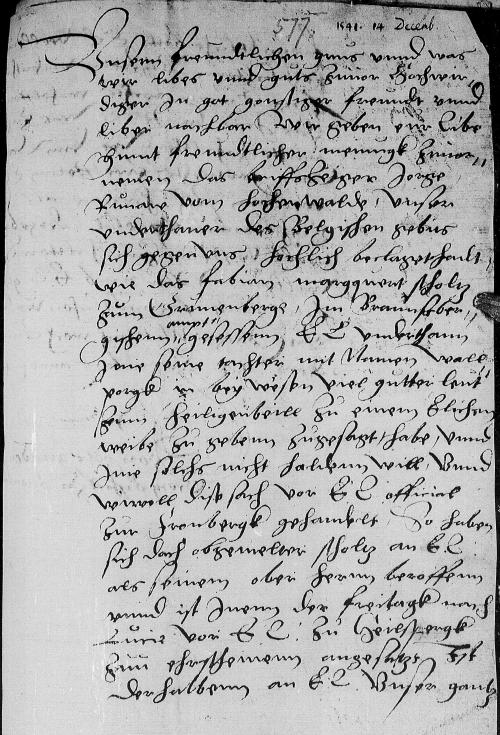 577 1541. 14 Decemb.
Vnsern freundtlichen grus vnnd was
wir libes vnnd guts zuuor Hochwir
diger In got gonstiger freundt vnnd
liber nachbar Wir geben eur Libe
hirmit freundtlicher meinungk zuuor
nemen das brieffszeiger Jorge
vom hochenwalde, vnser
vnderthaner des Belgischen gebits
sich gegen vns hochlich beclaget hadt
wie das fabian marqquart scholtz
zum Grunenberge, Im Braunsber
gischenn ampt gesessenn E L vnderthann
Ime seine tochter mit Namen wall
porgk in bey wesen viel gutter leut
zum heiligenbeill zu einem Elichen
weibe zu gebenn zugesagt habe, vnnd
Ime solchs nicht haldenn will, Vnnd
wiwoll dise sach vor E L official
zur frauenbergk gehandelt, So haben
sich doch obgemelter scholtz an E L
als seinem ober hernn beroffenn
vnnd ist Inenn der freitagk nach
Lucie vor E L zu Heilspergk
zuu erscheinenn angesatzt Ist
derhalbenn an E L Vnser gantz